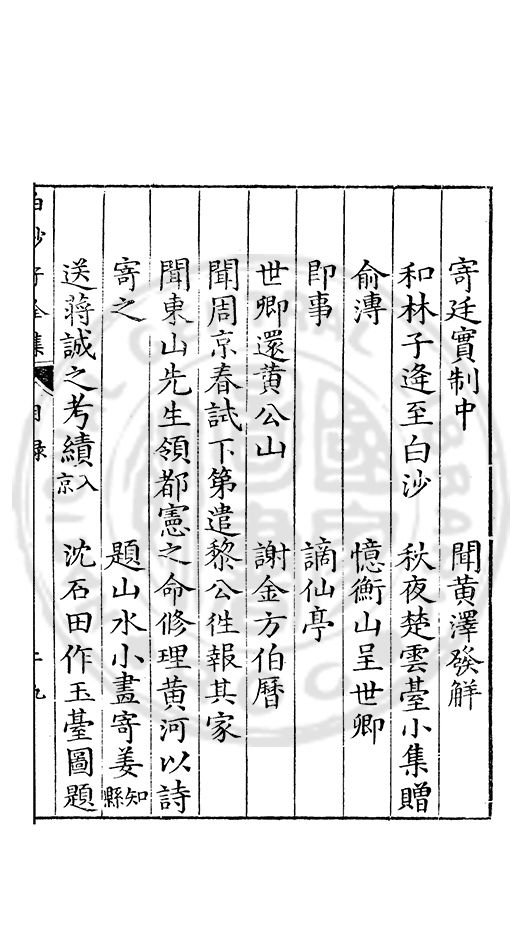 寄廷實制中　聞黃澤發解
和林子逄至白沙　秋夜楚雲臺小集贈
俞漙　憶衡山呈世卿
即事　謫仙亭
世卿還黃公山　謝金方伯曆
聞周京春試下第遣黎公徃報其家
聞東山先生領都憲之命修理黃河以詩
寄之　題山水小畫寄姜知縣
送蔣誠之考績入京　沈石田作玉臺圖題
白沙子全集　目錄